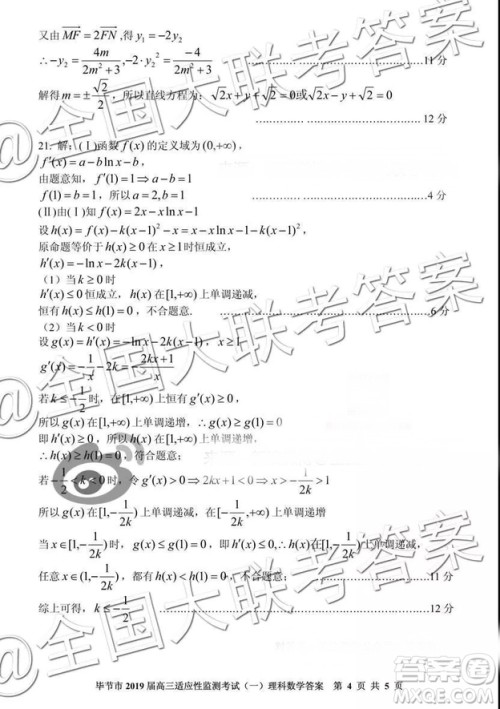 又由 $\overrightarrow{MF}=2\overrightarrow{FN}$ ,得 $y_1=-2y_2$
∴ $-y_2=\frac{4m}{2m^2+3}$ , $-2\cdot y_2{}^2=\frac{-4}{2m^2+3}$ 11 分
解得 $m=\pm\frac{\sqrt{2}}{2}$ ，所以直线方程为： $\sqrt{2}x+y-\sqrt{2}=0$ 或 $\sqrt{2}x-y-\sqrt{2}=0$
12 分
21. 解:（Ⅰ)函数 $f(x)$ 的定义域为 $(0,+\infty)$ ,
$f'(x)=a-b\ln x-b$ ,
由题意知， $f'(1)=1\Rightarrow a-b=1$
$f(1)=b=1$ ，所以 $a=2,b=1$ 4 分
(Ⅱ)由(Ⅰ)知 $f(x)=2x-x\ln x-1$
设 $h(x)=f(x)-k(x-1)^2-x=x-x\ln x-k(x-1)^2-1$
原命题等价于 $h(x)\geq 0$ 在 $x\geq 1$ 时恒成立,
$h'(x)=-\ln x-2k(x-1)$ ,
（1）当 $k\geq 0$ 时
$h'(x)\leq 0$ 恒成立, $h(x)$ 在 $[1,+\infty)$ 上单调递减,
恒有 $h(x)\leq h(1)=0$ , 不合题意. 6 分
（2）当 $k<0$ 时
设 $g(x)=h'(x)=-\ln x-2k(x-1)$ , $x\geq 1$
$g'(x)=-\frac{1}{x}-2k=-\frac{2kx+1}{x}$
若 $k\leq-\frac{1}{2}$ 时, $g'(x)$ 在 $[1,+\infty)$ 上恒有 $g'(x)>0$ ,
所以 $g(x)$ 在 $[1,+\infty)$ 上单调递增, ∴ $g(x)\geq g(1)=0$
即 $h'(x)\geq 0$ , 所以 $h(x)$ 在 $[1,+\infty)$ 上单调递增,
∴ $h(x)\geq h(1)=0$ ，符合题意；
若 $-\frac{1}{2}<k<0$ 时，令 $g'(x)>0\Rightarrow 2kx+1<0\Rightarrow x>-\frac{1}{2k}$
所以 $g(x)$ 在 $[1,-\frac{1}{2k})$ 上单调递减, 在 $[-\frac{1}{2k},+\infty)$ 上单调递增
当 $x\in[1,-\frac{1}{2k})$ 时, $g(x)\leq g(1)=0$ , 即 $h'(x)\leq 0$ ,∴ $h(x)$ 在 $[1,-\frac{1}{2k})$ 上单调递减.
任意 $x\in(1,-\frac{1}{2k})$ , 都有 $h(x)<h(1)=0$ , 不合题意; 11 分
综上可得， $k\leq-\frac{1}{2}$ 12 分
毕节市 2019 届高三适应性监测考试（一）理科数学答案 第 4 页 共 5 页
@全国大联考答案
@全国大联考答案